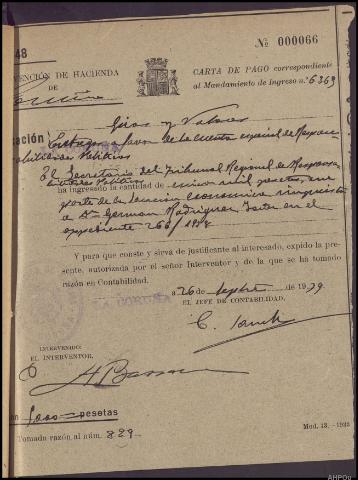 48
Nº 000066
VENCIÓN DE HACIENDA
DE
CARTA DE PAGO correspondiente
al Mandamiento de Ingreso n.º 6369
Giros y Valores
ación
de la cuenta especial de Respon
sabilidades Políticas
El Secretario del Tribunal Regional de Responsa
bilidades Políticas
ha ingresado la cantidad de cinco mil pesetas, con
parte de la sanción económica impuesta
a Dn German Rodriguez en el
expediente 266/
Y para que conste y sirva de justificante al interesado, expido la pre-
sente, autorizada por el señor Interventor y de la que se ha tomado
razón en Contabilidad.
LA CORUÑA
a 26 de Sepbre de 1939
EL JEFE DE CONTABILIDAD,
C.
INTERVENIDO:
EL INTERVENTOR,
on 5000 pesetas
Tomada razón al núm. 829
Mod. 13.-1933
AHPOu